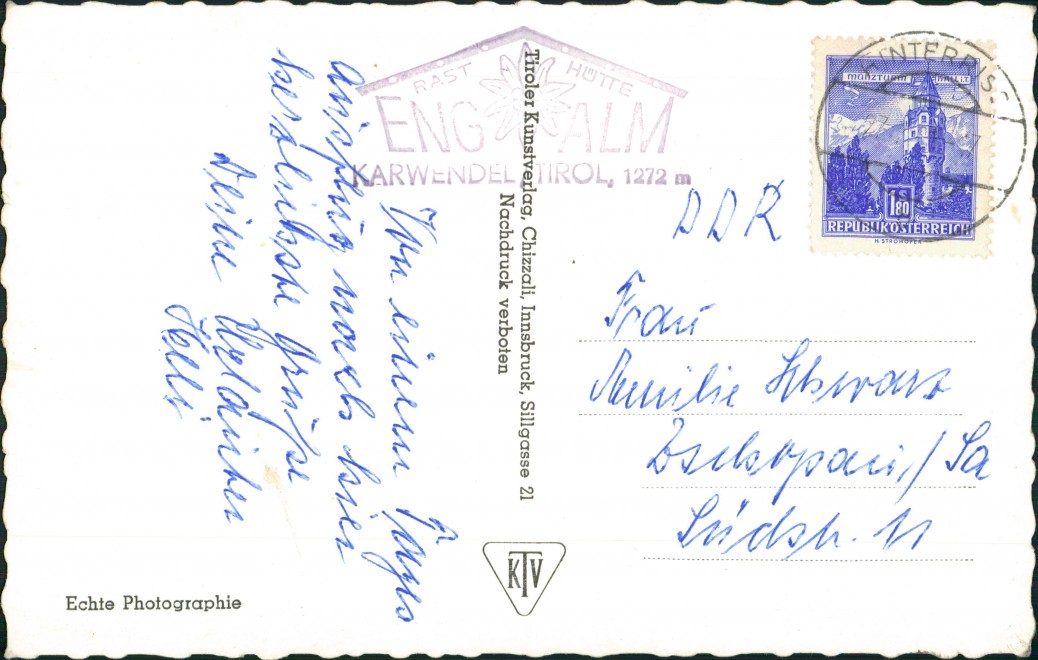 Von einem Tages
ausflug nach hier
herzlichste Grüsse
Deine dankbaren
Helli
RAST HÜTTE
ENG ALM
KARWENDEL, TIROL, 1272 m
Tiroler Kunstverlag, Chizzali, Innsbruck, Sillgasse 21
Nachdruck verboten
KTV
Echte Photographie
HINTERRISS
MÜNZTURM HALL i. T.
1.80
REPUBLIK ÖSTERREICH
H. STROHOFER
DDR
Frau
Amilie Schwarz
Zschopau / Sa
Südstr. 11